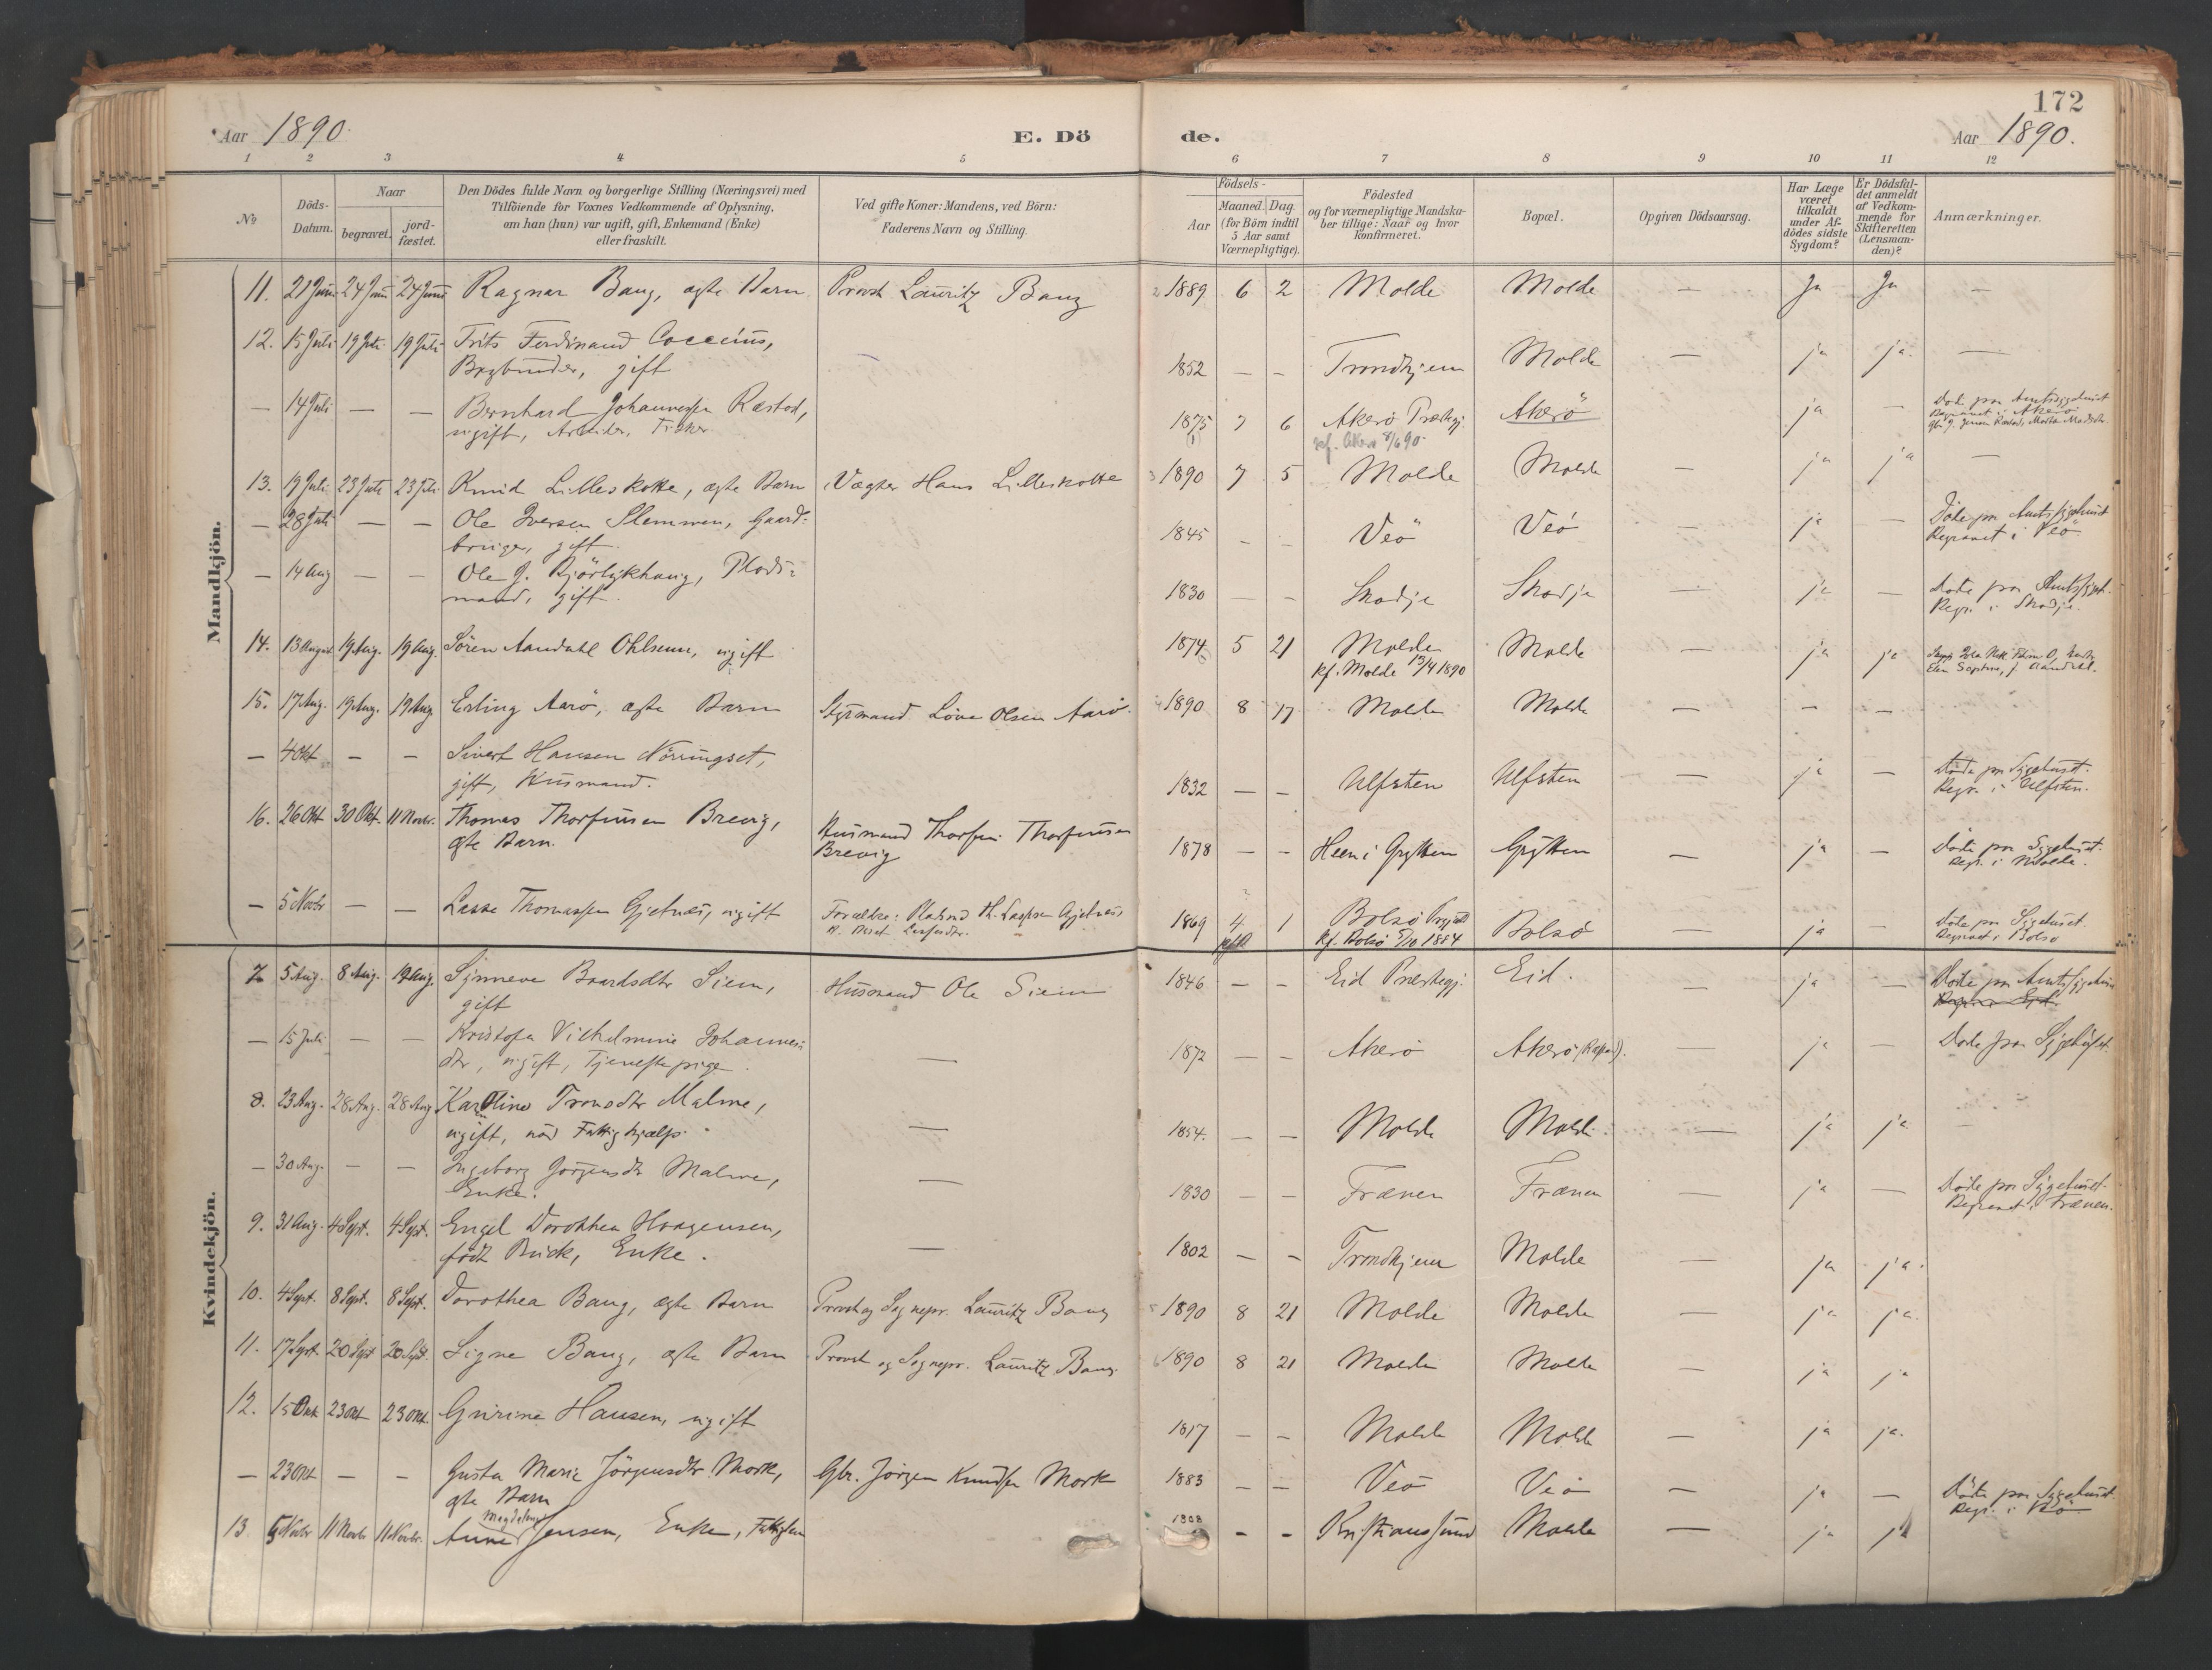 172
Aar 1890. E. Dö de. Aar 1890.
1 2 3 4 5 6 7 8 9 10 11 12
No
Döds-Datum.
Naar
begravet.
jord-fæstet.
Den Dödes fulde Navn og borgerlige Stilling (Næringsvei) med
Tilföiende for Voxnes Vedkommende af Oplysning,
om han (hun) var ugift, gift, Enkemand (Enke)
eller fraskilt.
Ved gifte Koner: Mandens, ved Börn:
Faderens Navn og Stilling.
Födsels-
Aar
Maaned. Dag.
(for Börn indtil
5 Aar samt
Værnepligtige).
Födested
og for værnepligtige Mandska-
ber tillige: Naar og hvor
konfirmeret.
Bopæl.
Opgiven Dödsaarsag.
Har Læge
været
tilkaldt
under Af-
dödes sidste
Sygdom?
Er Dödsfal-
det anmeldt
af Vedkom-
mende for
Skifteretten
(Lensman-
den)?
Anmærkninger.
Mandkjön.
11. 21 Juni 24 Juni 24 Juni Ragnar Bang, ægte Barn Provst Lauritz Bang 1889 6 2 Molde Molde — Ja Ja —
12. 15 Juli 19 Juli 19 Juli Frits Ferdinand Coccius,
gift 1852 — — Trondhjem Molde — ja ja. —
— 14 Juli — — Bernhard Johannessen Rastad,
ugift, Arbeider, Fisker 1875 7 6 Akerö Præstegj. Akerö ja — Döde paa Amtssygehuset
Begravet i Akerö
kf. Akerö 8/6 90.
13. 19 Juli 23 Juli 23 Juli Knud Lilleskotte, ægte Barn Vægter Hans Lilleskotte 1890 7 5 Molde Molde — ja ja —
— 28 Juli — — Ole Iversen Slemmen, Gaard-
bruger, gift. 1845 — — Veö Veö — ja — Döde paa Amtssygehuset
Begravet i Veö
— 14 Aug — — Ole J. Bjørlykhaug, Plads-
mand, gift. 1830 — — Skodje Skodje — ja — Döde paa Amtssygeh.
Begr. i Skodje.
14. 13 August 19 Aug. 19 Aug. Sören Aandahl Ohlsenn, ugift 1874 5 21 Molde Molde ja ja
kf. Molde 13/4 1890
15. 17 Aug. 19 Aug. 19 Aug. Erling Aarö, ægte Barn Styrmand Löve Olsen Aarö. 1890 8 17 Molde Molde — — —
— 4 Okt — — Sivert Hansen Nörringset,
gift, Husmand. 1832 — — Ulfsten Ulfsten — ja — Döde paa Sygehuset.
Begr. i Ulfsten.
16. 26 Okt 30 Okt. 11 Novbr. Thomas Thorfinsen Brevig,
ægte Barn. Husmand Thorfin Thorfinsen
Brevig 1878 — — Heen i Grytten Grytten — ja — Döde paa Sygehuset.
Begr. i Molde.
— 5 Novbr — — Lasse Thomassen Gjetnæs, ugift Forældre: Pladsmd Th. Lassesen Gjetnæs, 1869 4 1 Bolsö Bolsö — ja — Döde paa Sygehuset.
Begravet i Bolsö
kf. Bolsö 5/10 1884
Kvindekjön.
7. 5 Aug. 8 Aug. 19 Aug. Synneve Baardsdtr Siem,
gift Husmand Ole Siem 1846 — — Eid Præstegj. Eid. — ja — Döde paa Amtssygehuset
— 15 Juli — — Kristofa Vilhelmine Johannes-
dtr, ugift, Tjenestepige. — 1872 — — Akerö Akerö — ja — Döde paa Sygehuset.
8. 23 Aug. 28 Aug. 28 Aug Karoline Tronsdtr Malme,
ugift, nöd Fattighjælp. — 1854. — — Molde Molde. — ja ja —
— 30 Aug. — — Ingeborg Jörgensdtr Malme,
Enke. — 1830 — — Frænen Frænen — ja — Döde paa Sygehuset.
Begravet i Frænen.
9. 31 Aug. 4 Sept. 4 Sept. Engel Dorothea Haagensen,
födt Buck, Enke. — 1802 — — Trondhjem Molde — ja ja.
10. 4 Sept. 8 Sept. 8 Sept. Dorothea Bang, ægte Barn Provst og Sognepr. Lauritz Bang 1890 8 21 Molde Molde — ja ja.
11. 17 Sept. 20 Sept 20 Sept. Signe Bang, ægte Barn Provst og Sognepr. Lauritz Bang. 1890 8 21 Molde Molde — ja ja
12. 15 Okt 23 Okt 23 Okt. Gurine Hansen, ugift 1817 — — Molde Molde — ja ja.
— 23 Okt — — Gusta Marie Jörgensdtr. Mork,
ægte Barn Gbr. Jörgen Knudsen Mork 1883 — — Veö Veö — ja — Döde paa Sygehuset.
Begr. i Veö
13. 5 Novbr 11 Novbr 11 Novbr. Anne Magdalena Jensen, Enke, Fattiglem 1808 — — Kristianssund Molde — ja ja